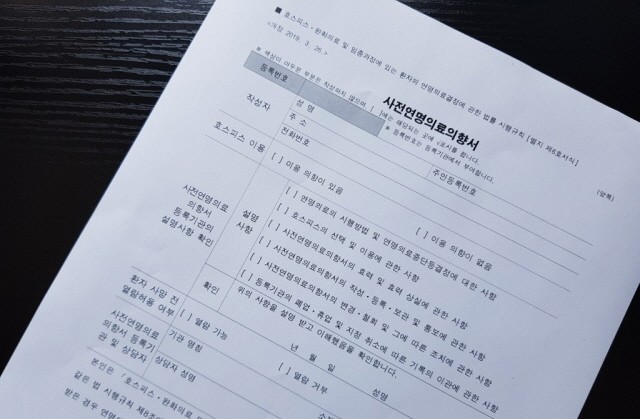 ■ 호스피스ㆍ완화의료 및 임종과정에 있는 환자의 연명의료결정에 관한 법률 시행규칙 [별지 제6호서식]
<개정 2019. 3. 26.>
(앞쪽)
사전연명의료의향서
※ 색상이 어두운 부분은 작성하지 않으며, [ ]에는 해당되는 곳에 √표시를 합니다.
등록번호
※ 등록번호는 등록기관에서 부여합니다.
작성자
성 명
주민등록번호
주 소
전화번호
호스피스 이용
[ ] 이용 의향이 있음
[ ] 이용 의향이 없음
사전연명의료
의향서
등록기관의
설명사항 확인
설명
사항
[ ] 연명의료의 시행방법 및 연명의료중단등결정에 대한 사항
[ ] 호스피스의 선택 및 이용에 관한 사항
[ ] 사전연명의료의향서의 효력 및 효력 상실에 관한 사항
[ ] 사전연명의료의향서의 작성ㆍ등록ㆍ보관 및 통보에 관한 사항
[ ] 사전연명의료의향서의 변경ㆍ철회 및 그에 따른 조치에 관한 사항
[ ] 등록기관의 폐업ㆍ휴업 및 지정 취소에 따른 기록의 이관에 관한 사항
확인
위의 사항을 설명 받고 이해했음을 확인합니다.
년 월 일
성명
환자 사망 전
열람허용 여부
[ ] 열람 가능
[ ] 열람 거부
사전연명의료
의향서 등록기
관 및 상담자
기관 명칭
상담자 성명
본인은 「호스피스ㆍ완화의료
같은 법 시행규칙 제8조
받은 경우